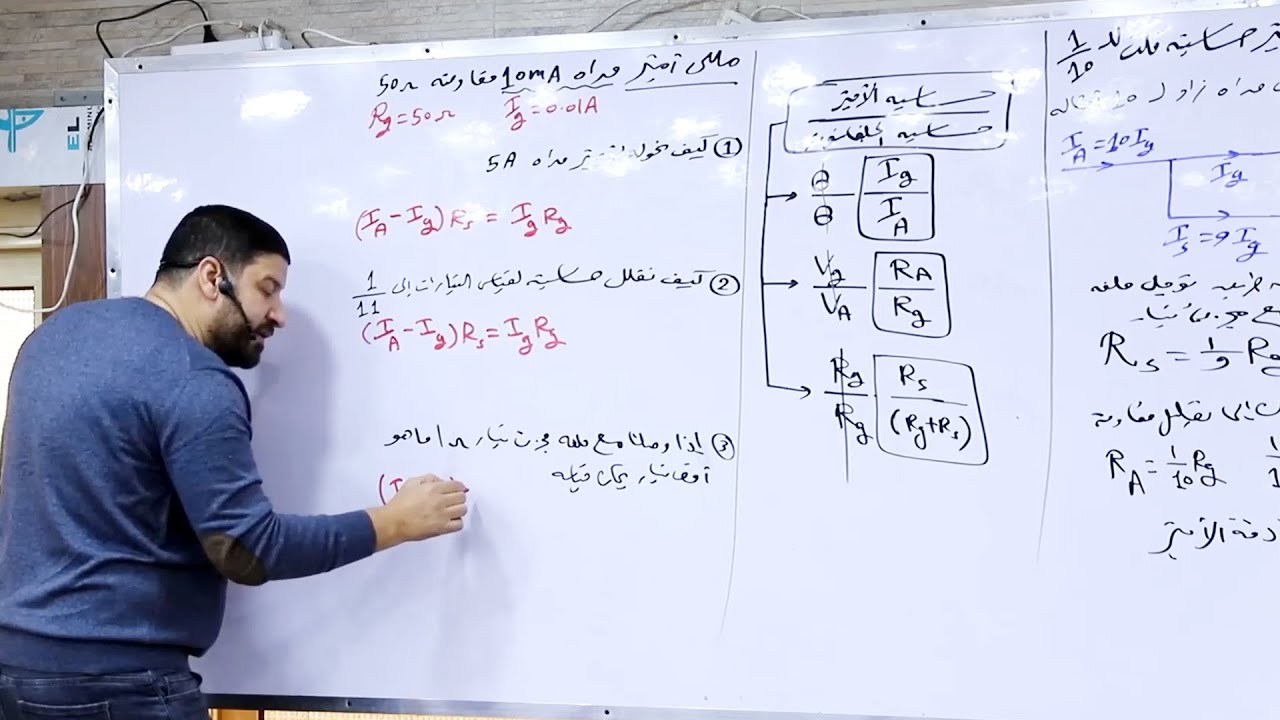 مللى أميتر مداه 10mA مقاومته 50Ω
Rg=50Ω Ig=0.01A
① كيف نحوله لأميتر مداه 5A
(IA-Ig)Rs = IgRg
② كيف نقلل حساسية لقياس التيارات إلى 1/11
(IA-Ig)Rs=IgRg
③ إذا وصلنا مع ملف مجزئ تيار ما هو
أقصى تيار يمكن قياسه
(I
حساسية الأميتر
حساسية الجلفانومتر
θ/θ Ig/IA
Vg/VA RA/Rg
Rg/Rg Rs/(Rg+Rs)
حساسيته 1/10
مداه زاد لـ 10
IA=10Ig
Ig
Is=9Ig
توصيل ملفه
Rs=1/9 Rg
تقليل مقاومة
RA=1/10 Rg
دقة الأميتر
EL